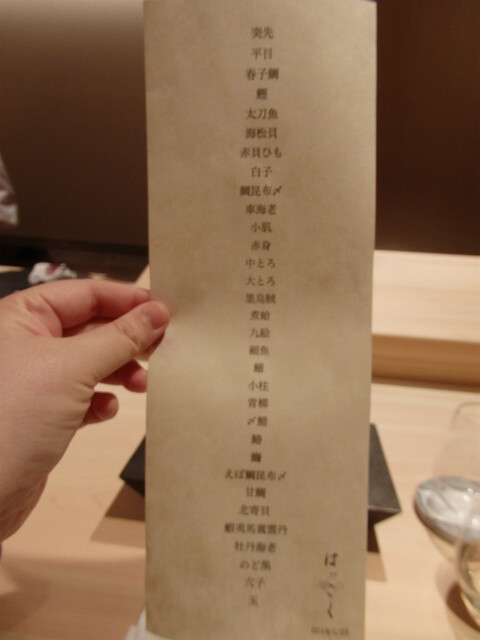 突先
平目
春子鯛
鰹
太刀魚
海松貝
赤貝ひも
白子
鯛昆布〆
車海老
小肌
赤身
中とろ
大とろ
墨烏賊
煮蛤
九絵
細魚
小柱
青柳
〆鯖
えぼ鯛昆布〆
甘鯛
北寄貝
蝦夷馬糞雲丹
牡丹海老
のど黒
穴子
玉